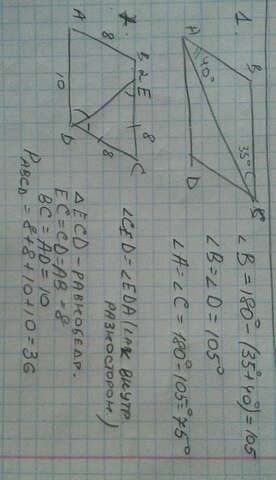 1.
A
B
40°
35°
C
D
∠B = 180° - (35° + 40°) = 105
∠B = ∠D = 105°
∠A = ∠C = 180° - 105° = 75°
A
8
B
2
E
10
8
D
8
C
∠CED = ∠EDA (как внутр
разностороn.)
△ECD - равнобедр.
EC = CD = AB = 8
BC = AD = 10
P ABCD = 8 + 8 + 10 + 10 = 36